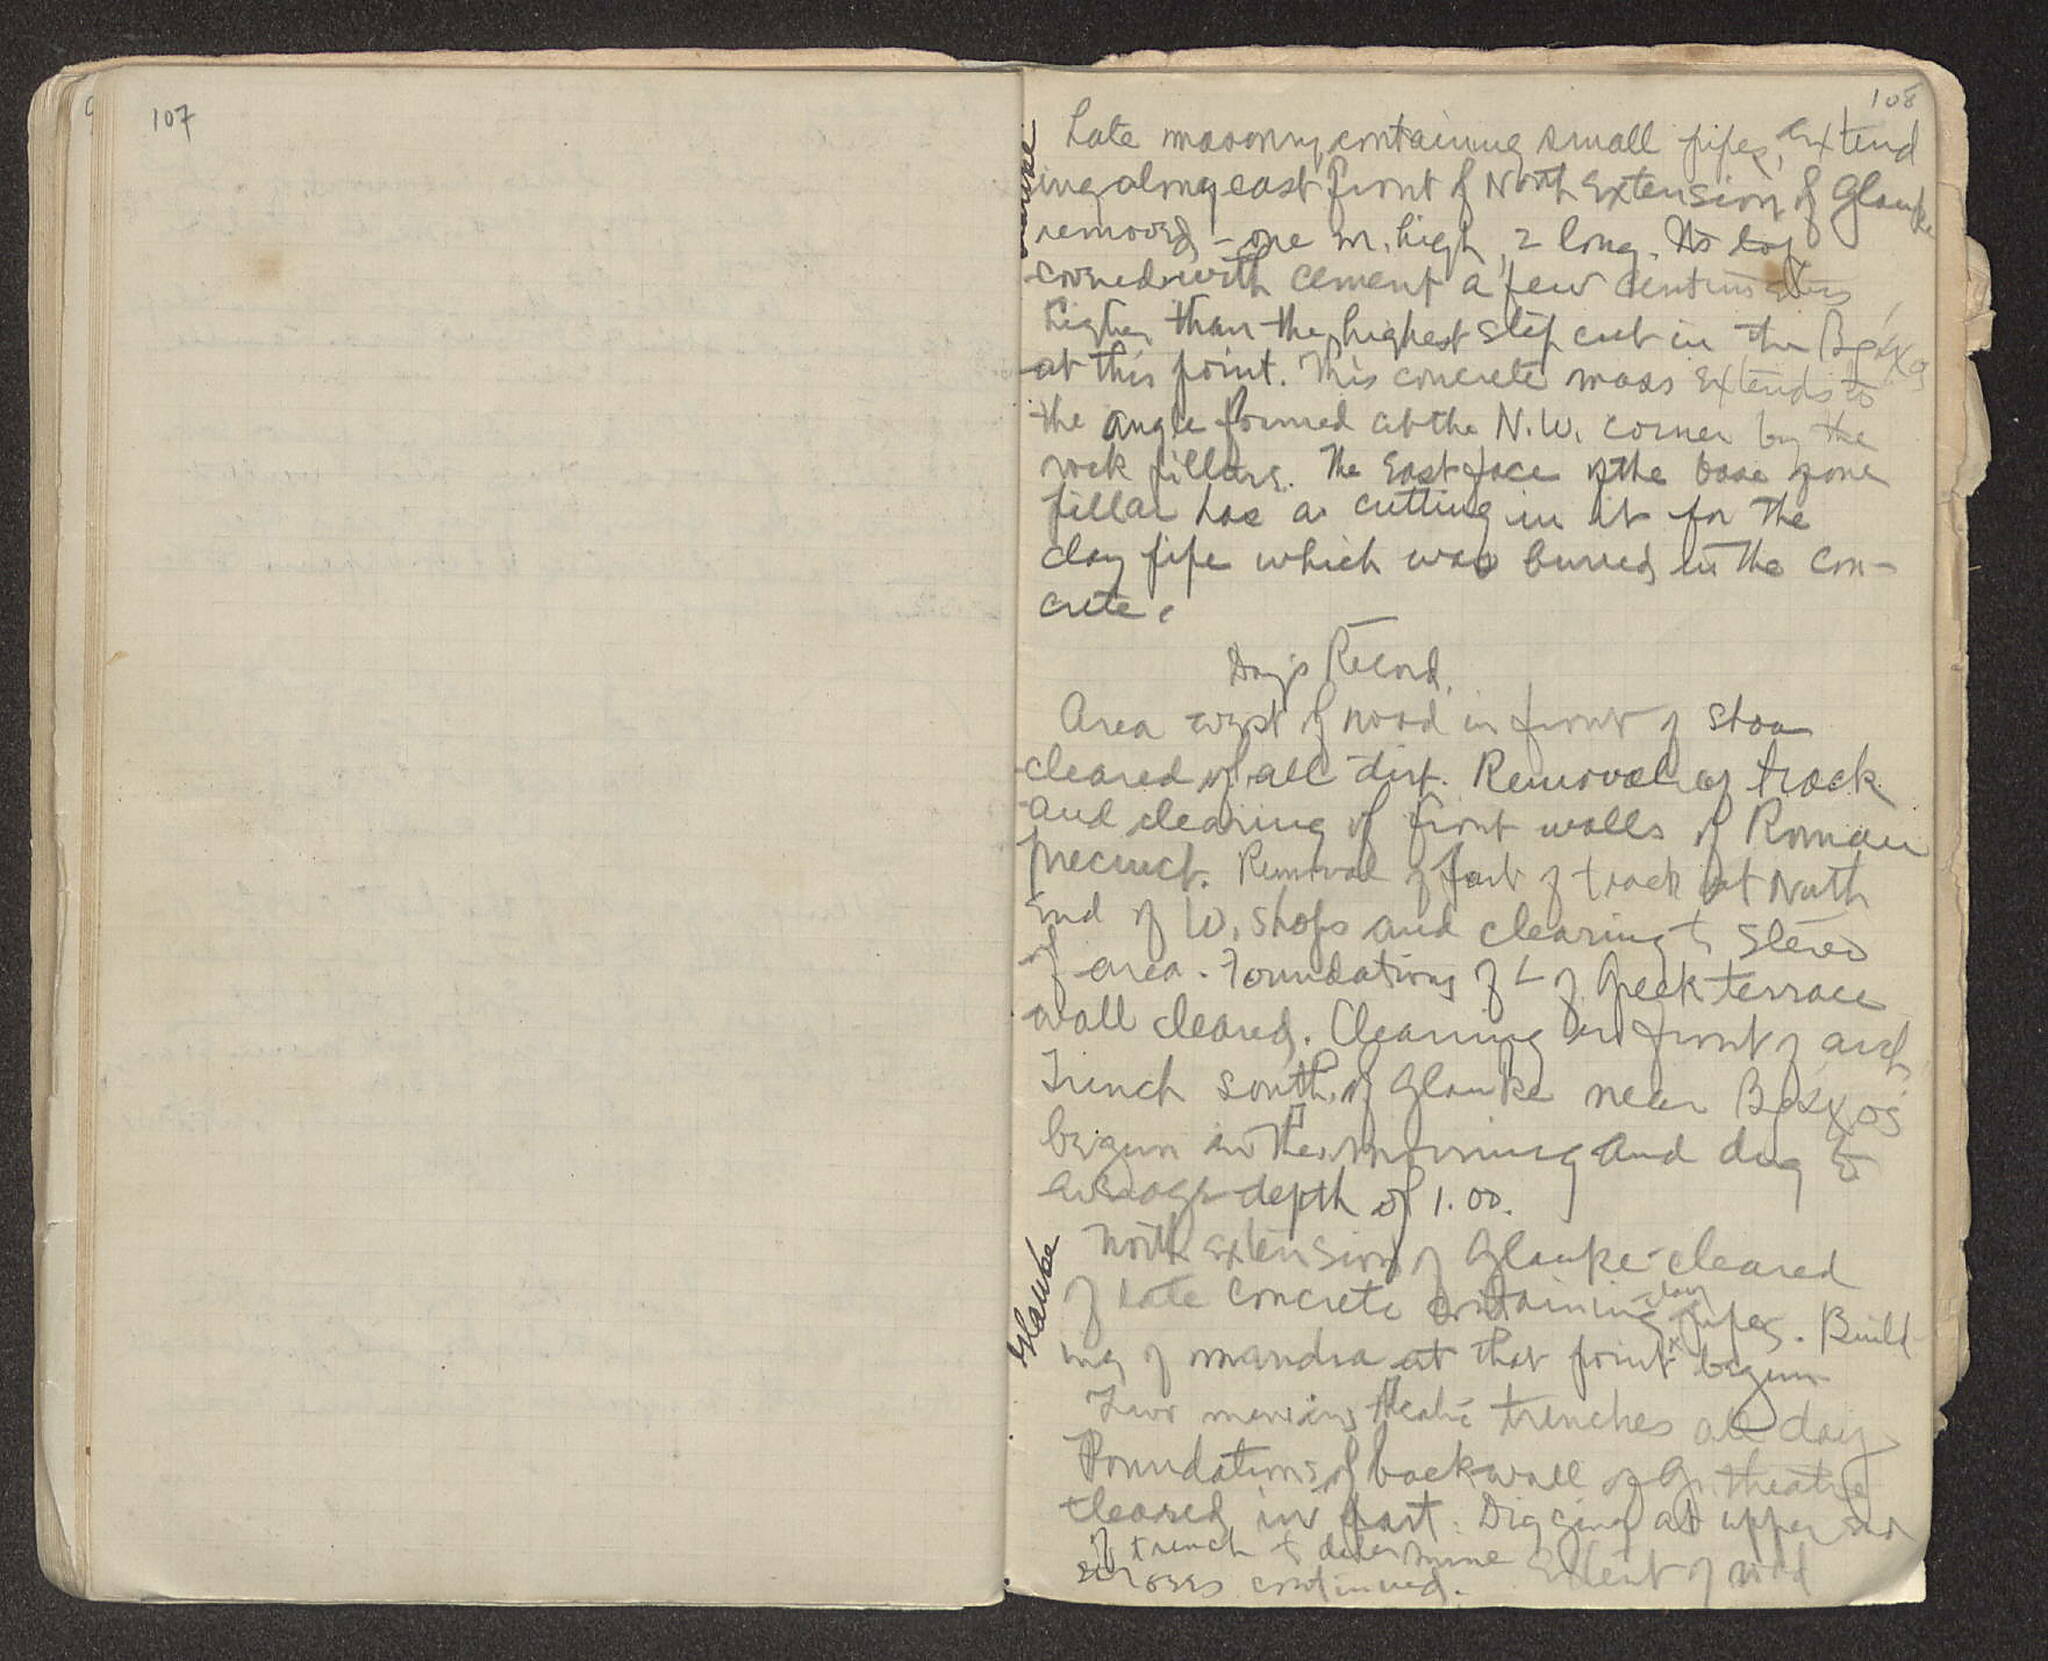 107
108
Late masonry, containing small pipes, extend
ing along east front of North Extension of Glauke
removed, - one m. high, 2 long. Its top
covered with cement a few centimeters
higher than the highest step cut in the Βράχος
at this point. This concrete mass extends to
the angle formed at the N.W. corner by the
rock pillars. The East face of the base of one
pillar has a cutting in it for the
clay pipe which was buried in the con-
crete.
Day's Record.
Area west of road in front of Stoa
cleared of all dirt. Removal of track
and clearing of front walls of Roman
precinct. Removal of part of track at North
End of W. Shops and clearing to stereo
of area. Foundations of L of Greek terrace
wall cleared. Clearing in front of arch.
Trench south of Glauke near Βράχος
begun in the morning and dug to
average depth of 1.00.
Glauke
North extension of Glauke cleared
of late concrete containing clay pipes. Build-
ing of mandra at that point begun
Two men in theatre trenches all day
Foundations of back wall of Gr. theatre
cleared in part. Digging at upper end
of trench to determine extent of road
continued.